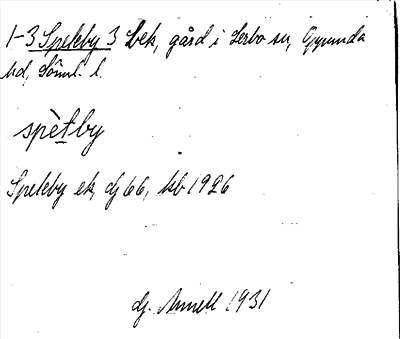 1-3 Spekeby 3 Lek, gård i Lerbo sn, Oppunda
hd, Söml. l.
spètby
Spekeby ek, dj 66, kb 1926
dj. Annell 1931